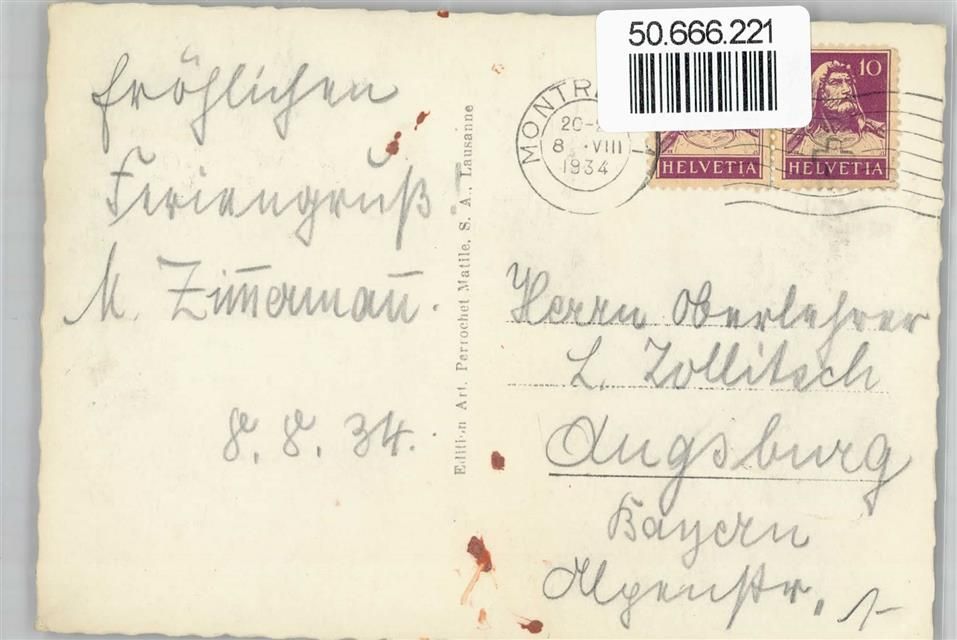 50.666.221
Fröhlichen
Feriengruß
M. Zim̅erman̅.
8. 8. 34.
Edition Art. Perrochet Matile, S. A., Lausanne
MONTR
20-2
8 .VIII
1934
10
HELVETIA
HELVETIA
Herrn Oberlehrer
L. Zollitsch
Augsburg
Bayern
Alpenstr. 1